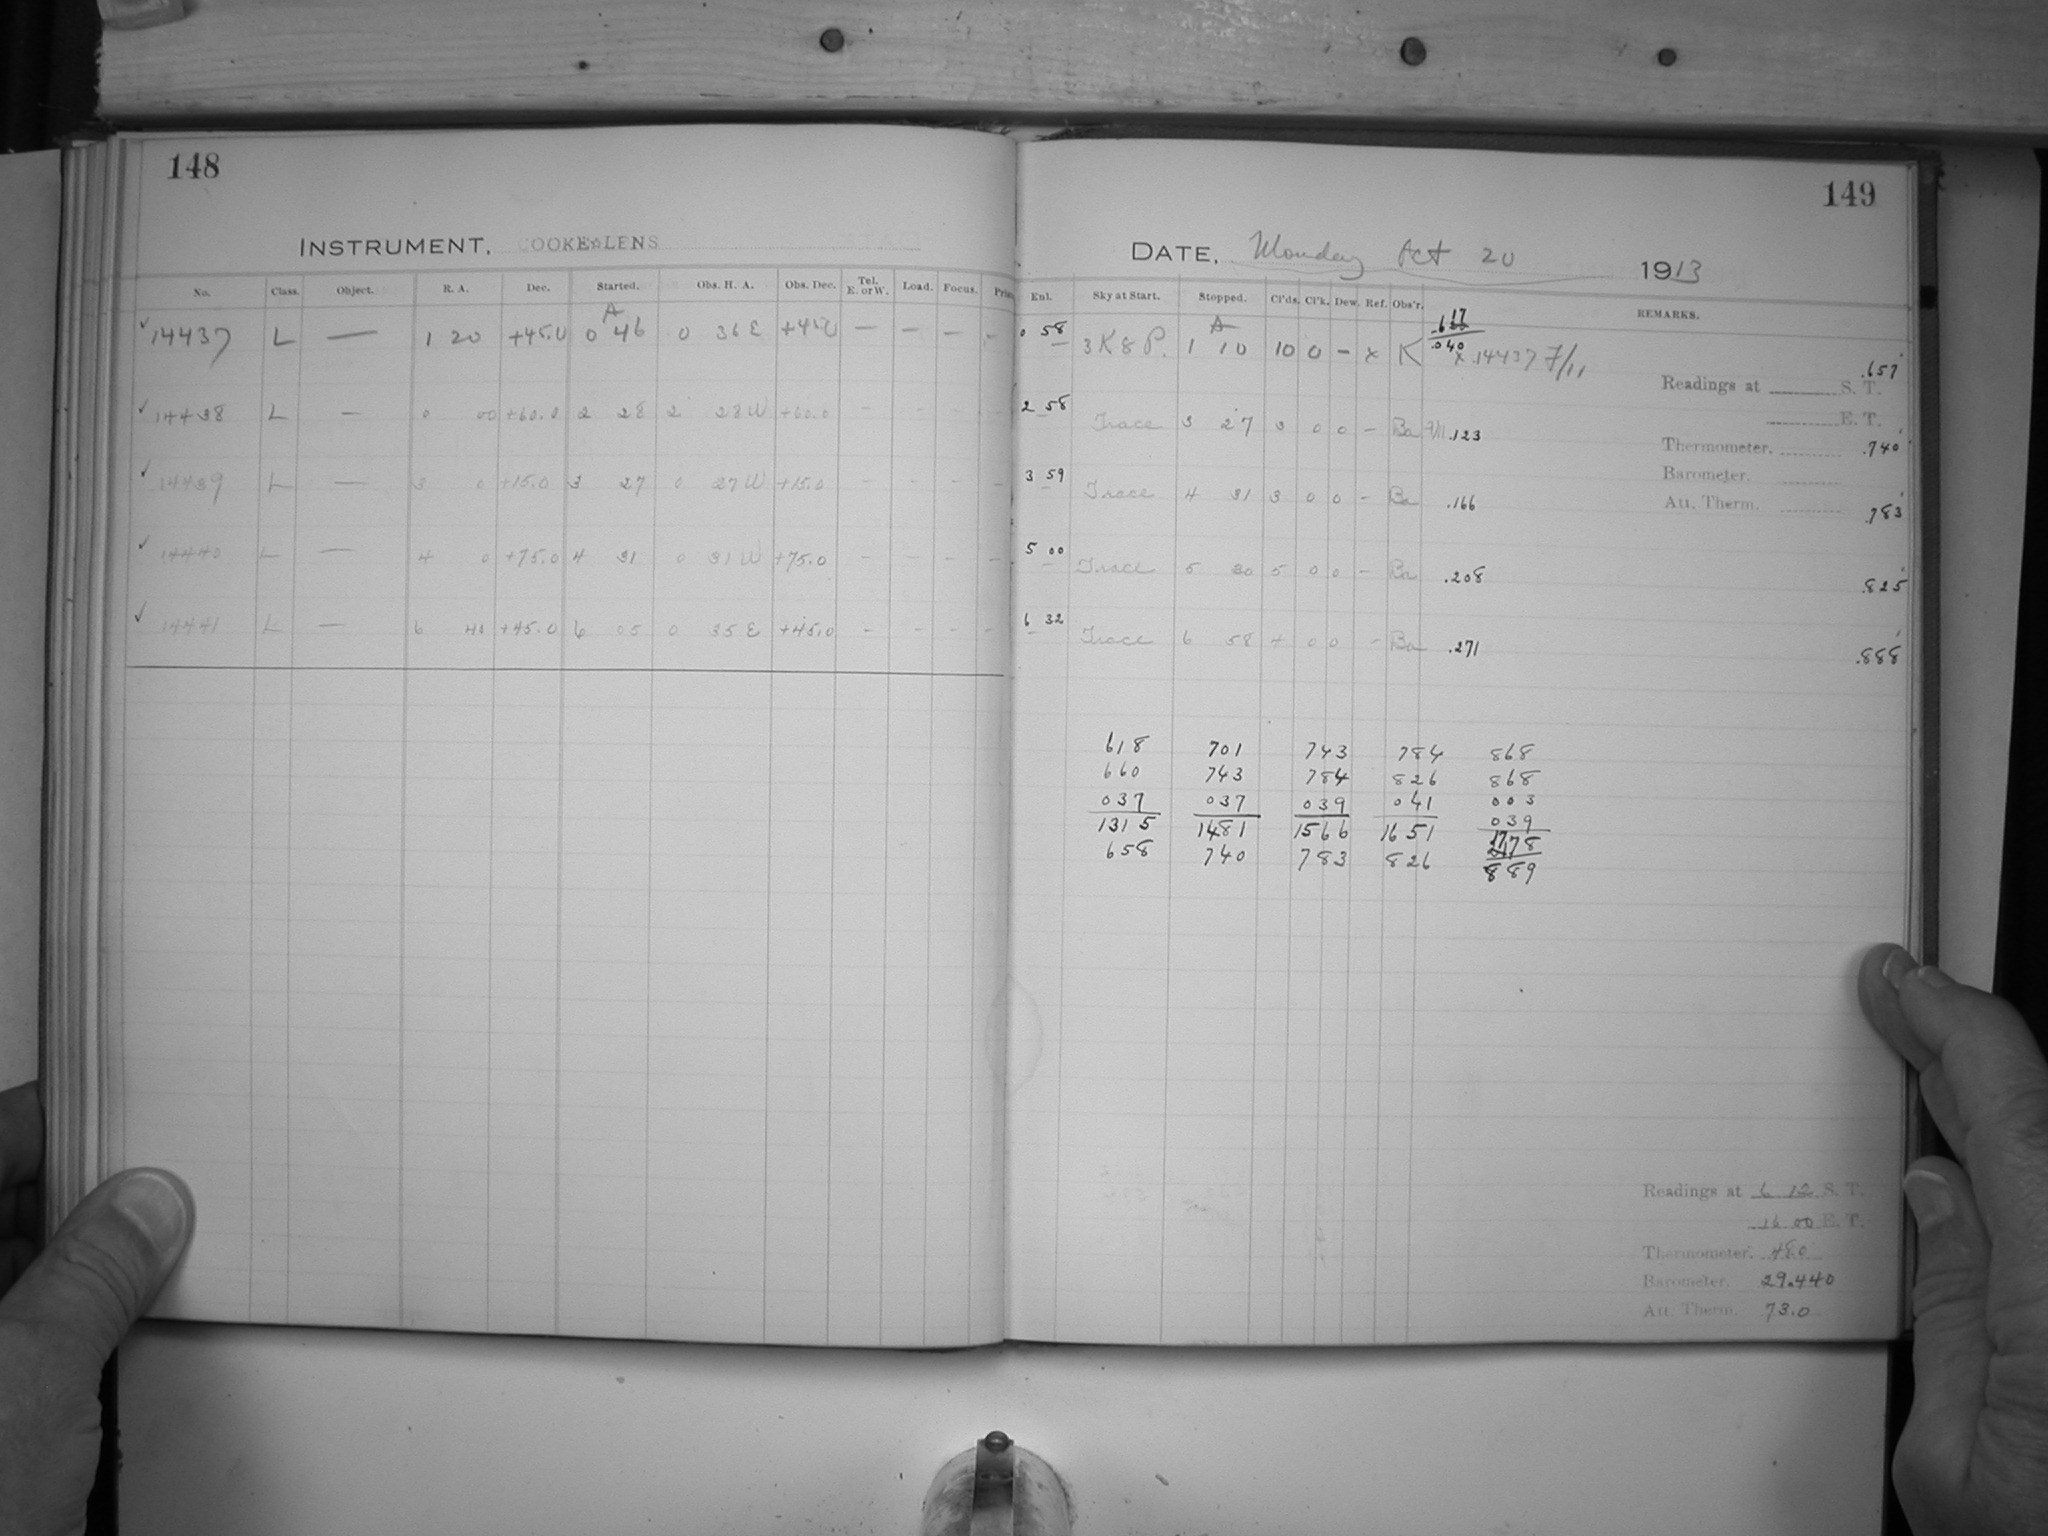 148
INSTRUMENT, COOKE☆LENS
No. Class. Object. R. A. Dec. Started. Obs. H. A. Obs. Dec. Tel. E. or W. Load. Focus.
A
✓ 14437 L — 1 20 +45.0 0 46 0 36 E — — — —
✓ 14438 L — 0 00 +60.0 2 28 2 28 W +60.0 - - -
✓ 14439 L — 3 0 +15.0 3 27 0 27 W +15.0 - - - -
✓ 14440 L — 4 0 +75.0 4 31 0 31 W +75.0 - - - -
✓ 14441 L — 6 40 +45.0 6 05 0 35 E +45.0 - - - -
149
DATE, Monday Oct 20 1913
Enl. Sky at Start. Stopped. Cl'ds. Cl'k. Dew. Ref. Obs'r. REMARKS.
A
.040
0 58 3 K 8 P. 1 10 10 0 — x K x 14437 F/11 .657
Readings at S. T.
E. T.
2 58 Trace 3 27 3 0 0 - Ba .123
Thermometer. .740
Barometer.
3 59 Trace 4 31 3 0 0 - Ba .166
Att. Therm. .783
5 00 Trace 5 30 5 0 0 - Ba .208 .825
6 32 Trace 6 58 + 0 0 - Ba .271 .888
618 701 743 784 868
660 743 784 826 868
037 037 039 041 003
039
1315 1481 1566 1651 1778
658 740 783 826 889
Readings at 6 12 S. T.
16 00 E. T.
Thermometer. 48.0
Barometer. 29.440
Att. Therm. 73.0